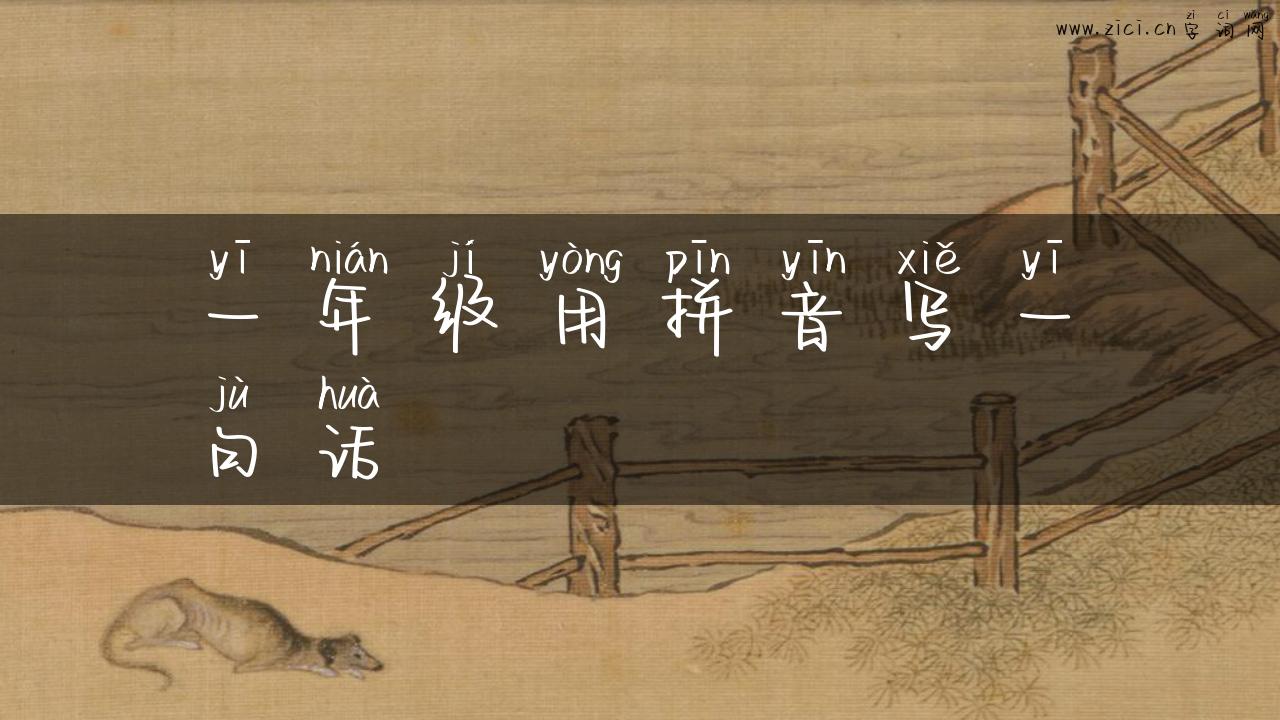 zì cí wǎng
www.zici.cn字词网
yī nián jí yòng pīn yīn xiě yī
一年级用拼音写一
jù huà
句话